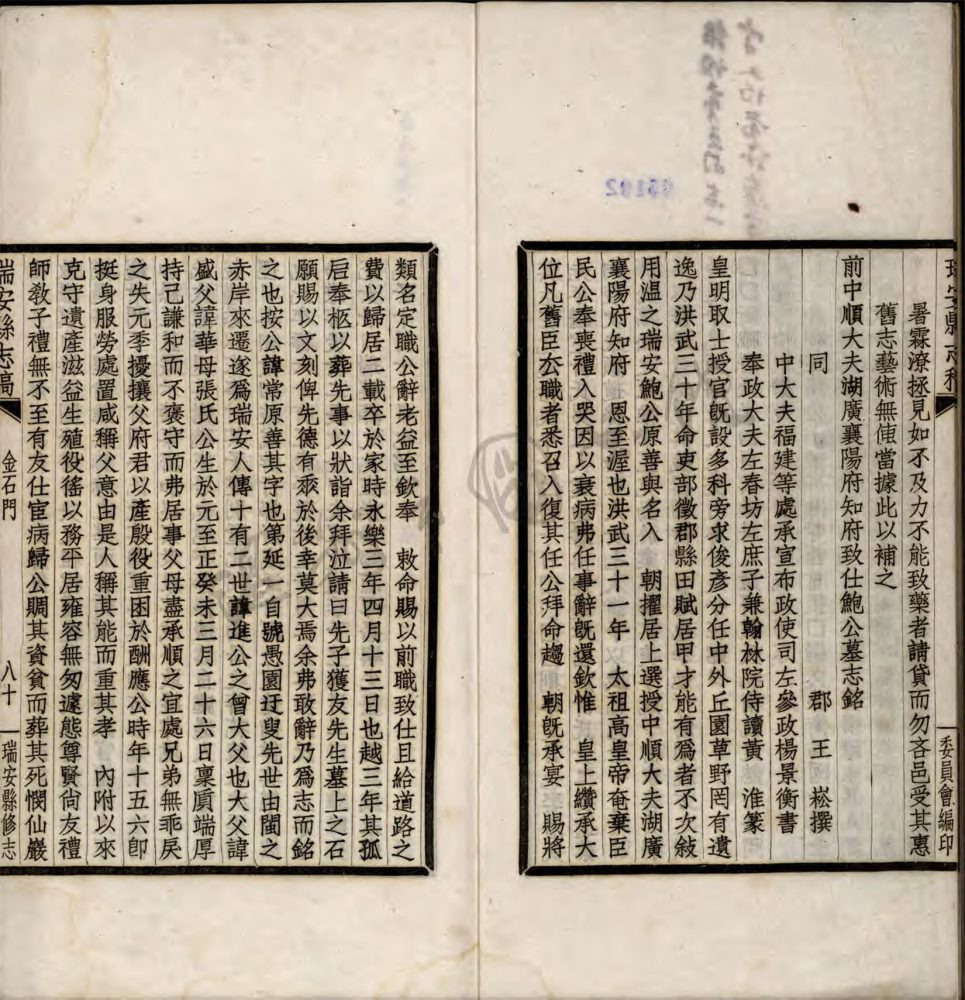 瑞安縣志稿
委員會編印
暑霖潦拯見如不及力不能致藥者請貸而勿吝邑受其惠
舊志藝術無傳當據此以補之
前中順大夫湖廣襄陽府知府致仕鮑公墓志銘
同　郡　王　崧撰
中大夫福建等處承宣布政使司左參政楊景衡書
奉政大夫左春坊左庶子兼翰林院侍讀黃　淮篆
皇明取士授官旣設多科旁求俊彥分任中外丘園草野罔有遺
逸乃洪武三十年命吏部徵郡縣田賦居甲才能有爲者不次敍
用溫之瑞安鮑公原善與名入　朝擢居上選授中順大夫湖廣
襄陽府知府　恩至渥也洪武三十一年　太祖高皇帝奄棄臣
民公奉喪禮入哭因以衰病弗任事辭旣還欽惟　皇上纘承大
位凡舊臣厺職者悉召入復其任公拜命趨　朝旣承宴　賜將
類名定職公辭老益至欽奉　敕命賜以前職致仕且給道路之
費以歸居二載卒於家時永樂三年四月十三日也越三年其孤
后奉柩以葬先事以狀詣余拜泣請曰先子獲友先生墓上之石
願賜以文刻俾先德有乘於後幸莫大焉余弗敢辭乃爲志而銘
之也按公諱常原善其字也第延一自號愚園迂叟先世由閩之
赤岸來遷遂爲瑞安人傳十有二世諱進公之曾大父也大父諱
盛父諱華母張氏公生於元至正癸未三月二十六日稟質端厚
持己謙和而不褻守而弗居事父母盡承順之宜處兄弟無乖戾
之失元季擾攘父府君以產殷役重困於酬應公時年十五六卽
挺身服勞處置咸稱父意由是人稱其能而重其孝　內附以來
克守遺產滋益生殖役徭以務平居雍容無匆遽態尊賢尙友禮
師敎子禮無不至有友仕宦病歸公賙其資貧而葬其死憫仙巖
瑞安縣志稿
金石門
八十
瑞安縣修志